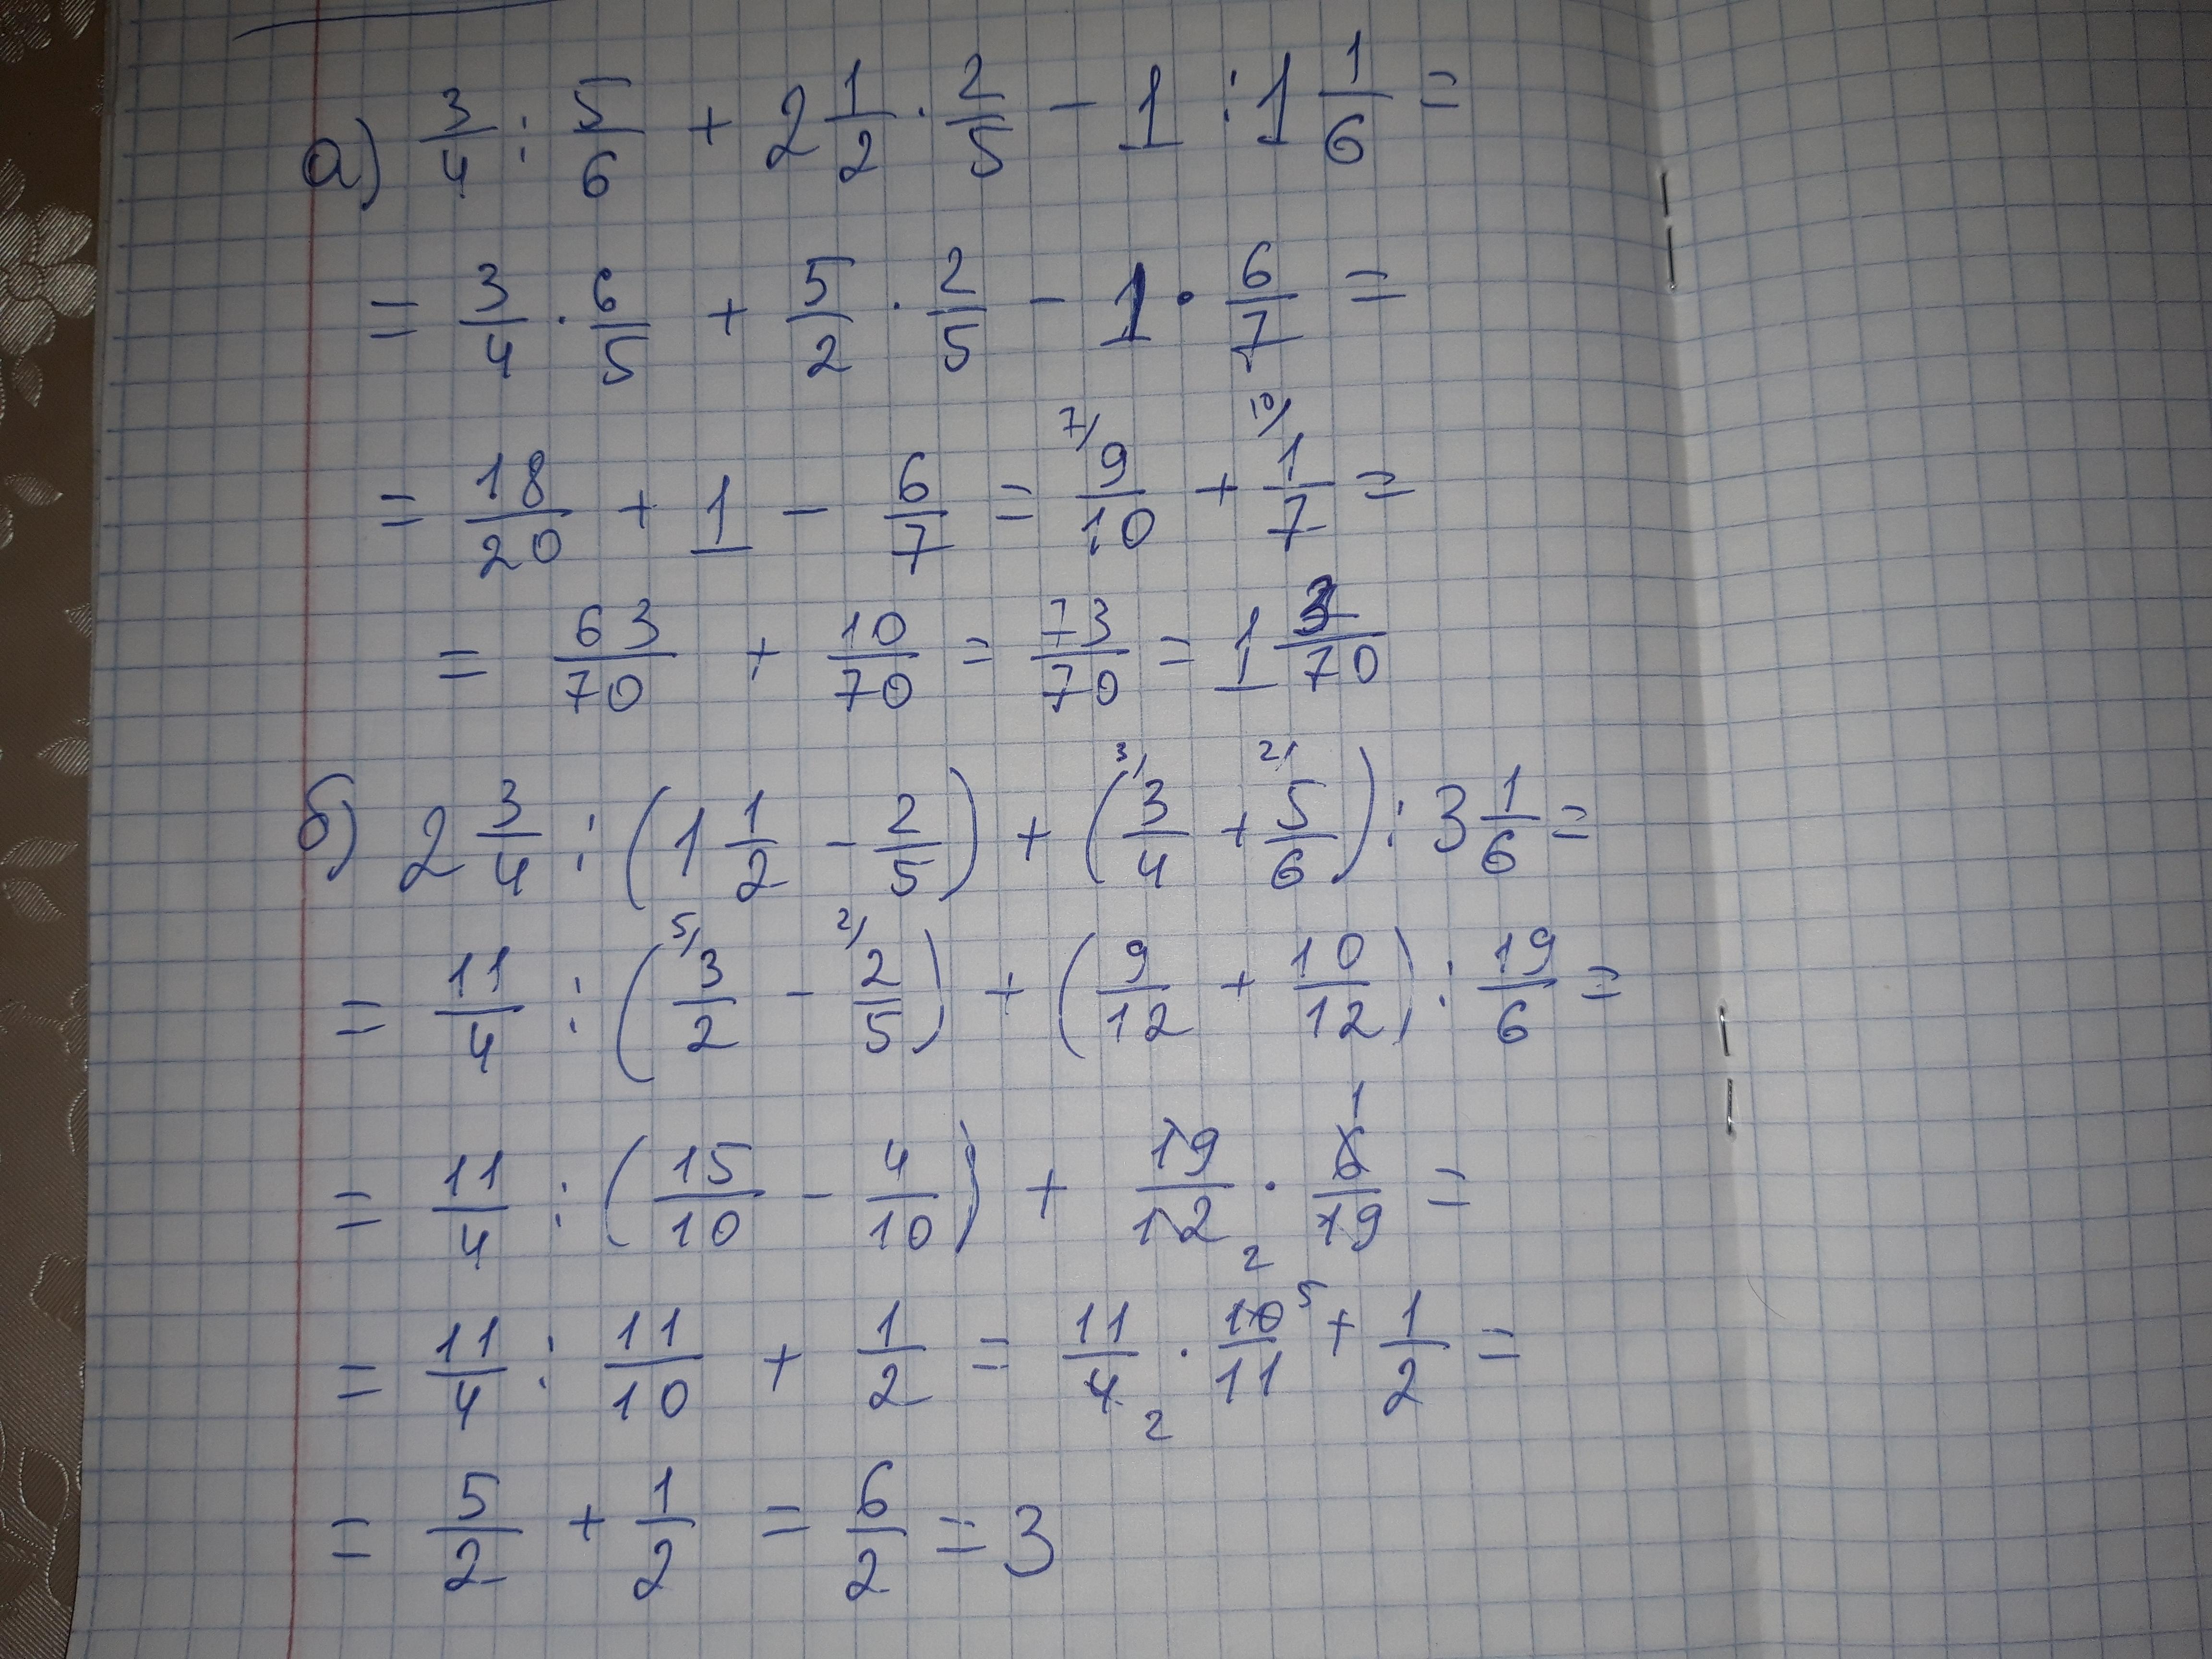 а) 3/4 : 5/6 + 2 1/2 · 2/5 - 1 : 1 1/6 =
= 3/4 · 6/5 + 5/2 · 2/5 - 1 · 6/7 =
= 18/20 + 1 - 6/7 = 7/ 9/10 + 10/ 1/7 =
= 63/70 + 10/70 = 73/70 = 1 3/70
б) 2 3/4 : (1 1/2 - 2/5) + (3/ 3/4 + 2/ 5/6) : 3 1/6 =
= 11/4 : (5/ 3/2 - 2/ 2/5) + (9/12 + 10/12) : 19/6 =
= 11/4 : (15/10 - 4/10) + 19/12 2 · 6 1/19 =
= 11/4 : 11/10 + 1/2 = 11/4 2 · 10 5/11 + 1/2 =
= 5/2 + 1/2 = 6/2 = 3